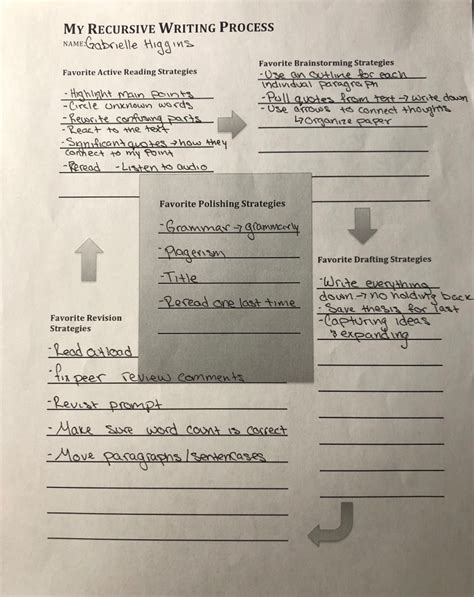 MY RECURSIVE WRITING PROCESS
NAME: Gabrielle Higgins
Favorite Active Reading Strategies
- Highlight main points
- Circle unknown words
- Rewrite confusing parts
- React to the text
- Significant quotes → how they
connect to my point
- Reread - Listen to audio
Favorite Brainstorming Strategies
- Use an outline for each
individual paragraph
- Pull quotes from text → write down
- Use arrows to connect thoughts
↳ organize paper
Favorite Polishing Strategies
- Grammar → grammarly
- Plagerism
- Title
- Reread one last time
Favorite Drafting Strategies
- Write everything
down → no holding back
- Save thesis for last
- Capturing ideas
& expanding
Favorite Revision
Strategies
- Read outload
- fix peer review comments
- Revist prompt
- Make sure word count is correct
- Move paragraphs/sentencases